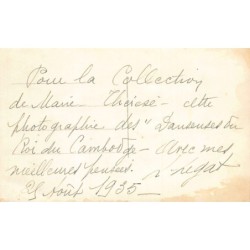 Pour la Collection
de Marie Thérèse - cette
photographie des "Danseuses du
Roi du Cambodge - Avec mes
meilleures pensées.
5 Août 1935